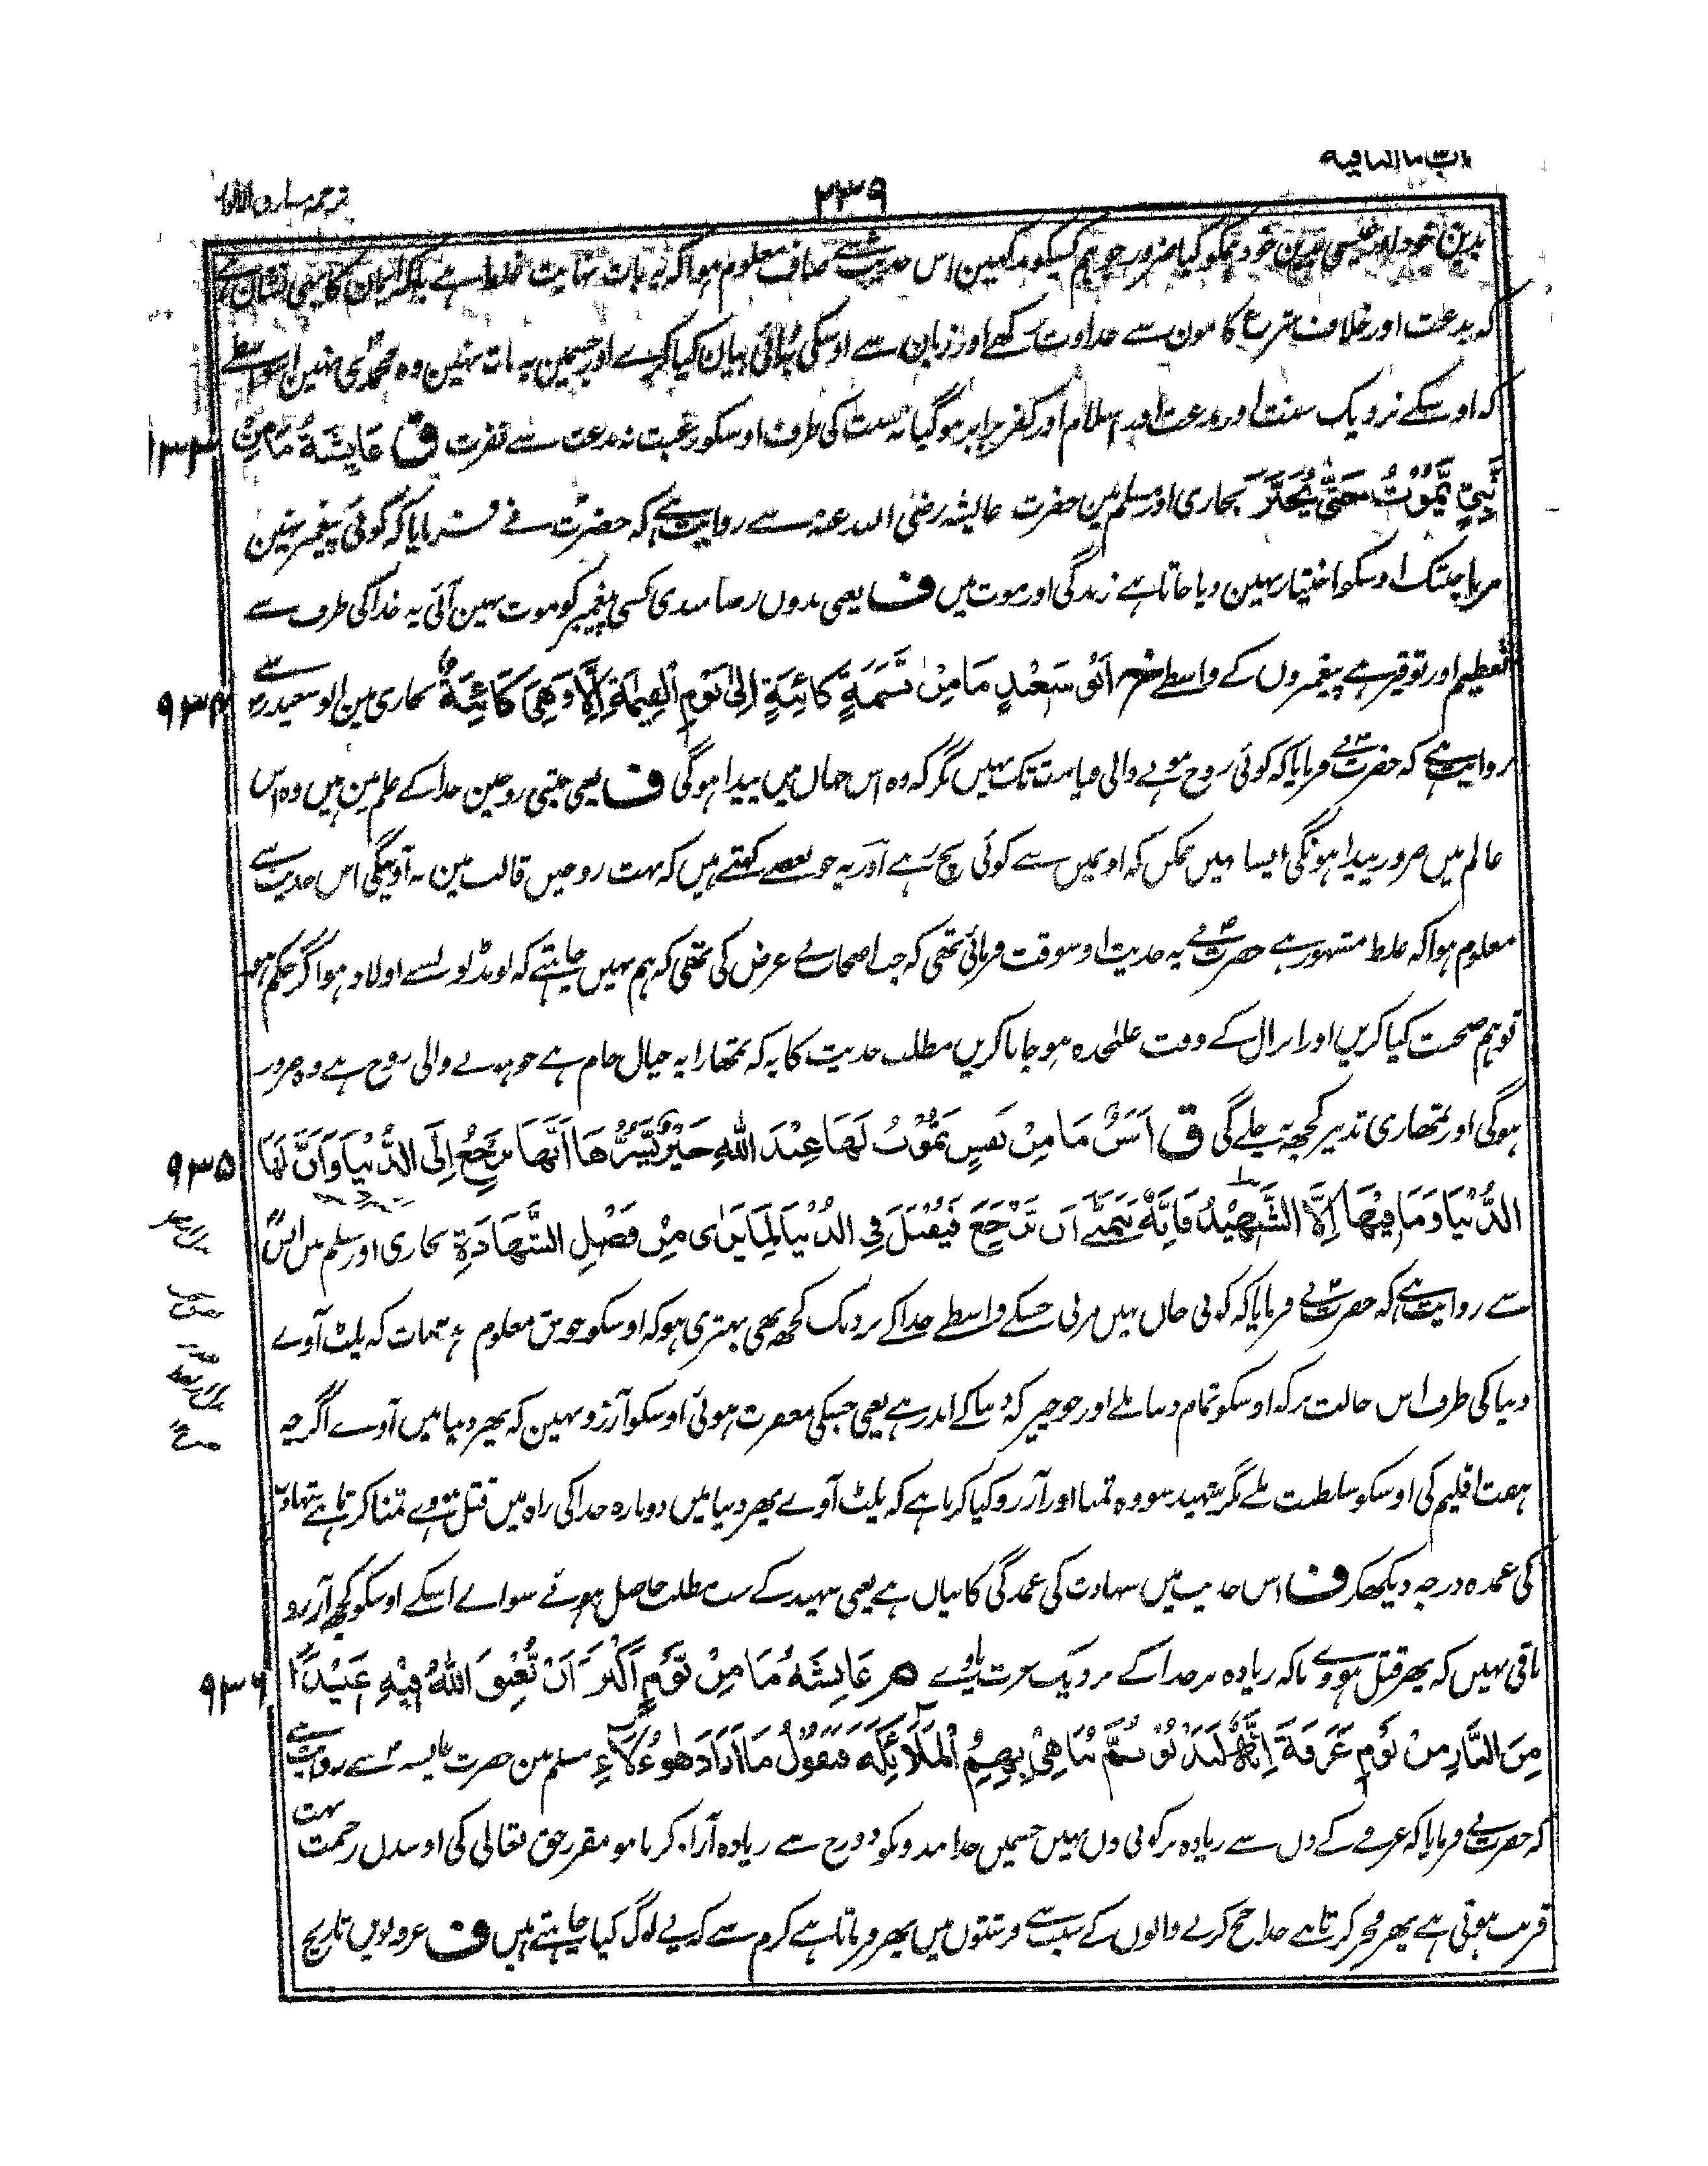 ۲۳۹
اس حدیث سے صاف معلوم ہوا کہ یہ بات نہایت غلط ہے بلکہ ایمان کا یہی نشان ہے
کہ بدعت اور خلاف شرع کامون سے عداوت رکھے اور زبان سے اوسکی برائی بیان کیا کرے اور جسمین یہ بات نہین وہ محمدی نہین اسواسطے
کہ اوسکے نزدیک سنت اور بدعت اور اسلام اور کفر برابر ہو گیا نہ سنت کی طرف اوسکو رغبت نہ بدعت سے نفرت ق عَایِشَةُ مَا مِنْ
نَّبِیٍّ یَّمُوْتُ حَتّٰی یُخَیَّرَ بخاری اور مسلم مین حضرت عایشہ رضی اللہ عنہ سے روایت ہے کہ حضرت نے فرمایا کہ کوئی پیغمبر نہین
مرتا جبتک اوسکو اختیار نہین دیا جاتا ہے زندگی اور موت میں ف یعنی بدوں رضامندی کسی پیغمبر کو موت نہین آتی یہ خدا کی طرف سے
تعظیم اور توقیر ہے پیغمبروں کے واسطے خ اَبُوْ سَعِیْدٍ مَا مِنْ نَسَمَةٍ کَائِنَةٍ اِلٰی یَوْمِ الْقِیٰمَةِ اِلَّا وَهِیَ کَائِنَةٌ بخاری مین ابو سعید رض سے
۹۳۴
روایت ہے کہ حضرت نے فرمایا کہ کوئی روح ہونے والی قیامت تک نہیں مگر کہ وہ اس جہاں میں پیدا ہوگی ف یعنی جتنی روحین خدا کے علم مین ہیں وہ اس
عالم میں ضرور پیدا ہونگی ایسا نہیں ممکن کہ اونمیں سے کوئی بچ رہے اور یہ جو بعضے کہتے ہیں کہ بہت روحیں قالب مین نہ آوینگی اس حدیث سے
معلوم ہوا کہ غلط مشہور ہے حضرت نے یہ حدیث اوسوقت فرمائی تھی کہ جب اصحاب نے عرض کی تھی کہ ہم نہیں چاہتے کہ لونڈیوں سے اولاد ہو اگر حکم ہو
تو ہم صحبت کیا کریں اور انزال کے وقت علٰحدہ ہو جایا کریں مطلب حدیث کا یہ کہ تمھارا یہ خیال خام ہے جو ہونے والی روح ہے وہ ضرور
ہوگی اور تمھاری تدبیر کچھ نہ چلے گی ق اَنَسٌ مَا مِنْ نَفْسٍ تَمُوْتُ لَهَا عِنْدَ اللهِ خَیْرٌ یَّسُرُّهَا اَنَّهَا تَرْجِعُ اِلَی الدُّنْیَا وَاَنَّ لَهَا
۹۳۵
الدُّنْیَا وَمَا فِیْهَا اِلَّا الشَّهِیْدُ فَاِنَّهٗ یَتَمَنّٰی اَنْ یَّرْجِعَ فَیُقْتَلَ فِی الدُّنْیَا لِمَا یَرٰی مِنْ فَضْلِ الشَّهَادَةِ بخاری اور مسلم میں انس رض
سے روایت ہے کہ حضرت نے فرمایا کہ کوئی جان نہیں مرتی جسکے واسطے خدا کے نزدیک کچھ بھی بہتری ہو کہ اوسکو خوش معلوم ہو یہ بات کہ پلٹ آوے
دنیا کی طرف اس حالت پر کہ اوسکو تمام دنیا ملے اور جو چیز کہ دنیا کے اندر ہے یعنی جسکی مغفرت ہوئی اوسکو آرزو نہین کہ پھر دنیا میں آوے اگرچہ
ہفت اقلیم کی اوسکو سلطنت ملے مگر شہید سو وہ تمنا اور آرزو کیا کرتا ہے کہ پلٹ آوے پھر دنیا میں دوبارہ خدا کی راہ میں قتل ہووے تمنا کرتا ہے شہادت
کی عمدہ درجہ دیکھکر ف اس حدیث میں شہادت کی عمدگی کا بیان ہے یعنی شہید کے سب مطلب حاصل ہوئے سوائے اسکے اوسکو کچھ آرزو
باقی نہیں کہ پھر قتل ہووے تاکہ زیادہ تر خدا کے نزدیک عزت پاوے م عَایِشَةُ مَا مِنْ یَّوْمٍ اَکْثَرَ اَنْ یُّعْتِقَ اللهُ فِیْهِ عَبِیْدًا
۹۳۶
مِنَ النَّارِ مِنْ یَوْمِ عَرَفَةَ اِنَّهٗ لَیَدْنُوْ ثُمَّ یُبَاهِیْ بِهِمُ الْمَلَآئِکَةَ فَیَقُوْلُ مَا اَرَادَ هٰؤُلَآءِ مسلم مین حضرت عایشہ رض سے روایت ہے
کہ حضرت نے فرمایا کہ عرفے کے دن سے زیادہ تر کوئی دن نہیں جسمیں خدا بندوںکو دوزخ سے زیادہ آزاد کرتا ہو مقرر حق تعالی کی اوسدن رحمت بہت
قریب ہوتی ہے پھر فخر کرتا ہے خدا حج کرنے والوں کے سبب سے فرشتوں میں پھر فرماتا ہے کرم سے کہ یے لوگ کیا چاہتے ہیں ف عرفہ نویں تاریخ